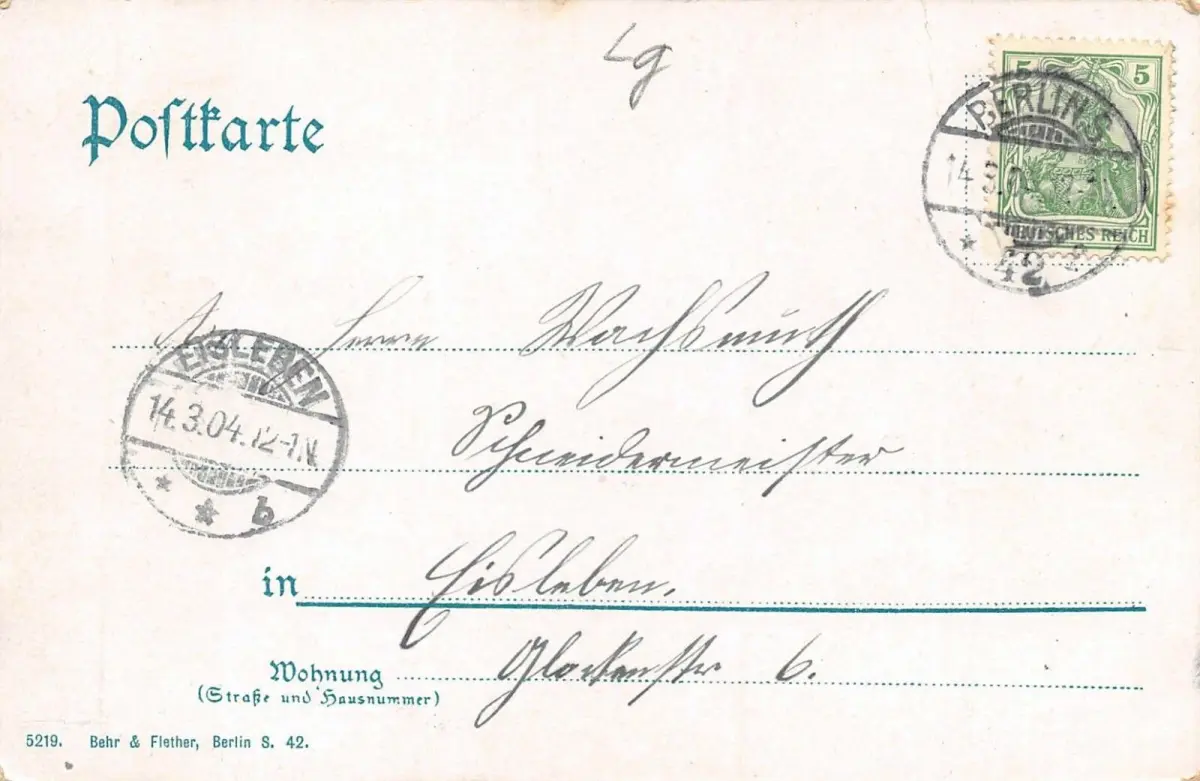 Lg
Postkarte
5 5
DEUTSCHES REICH
BERLIN S
14.3.0
42
An Herrn Wachsmuth
EISLEBEN
14.3.04.12-1.N.
* * b
Schneidermeister
in Eisleben.
Wohnung Glockenstr 6.
(Straße und Hausnummer)
5219. Behr & Flether, Berlin S. 42.